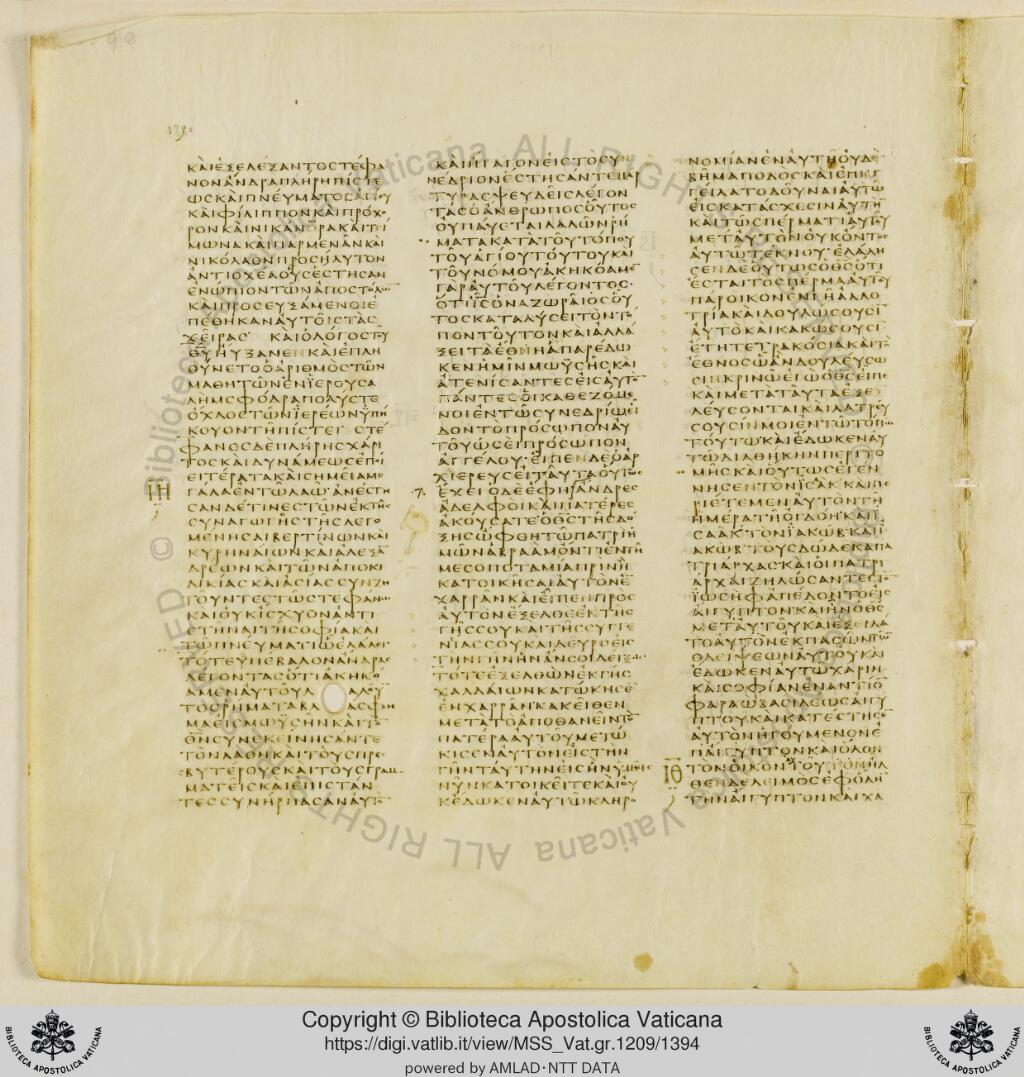 ΚΑΙΕΞΕΛΕΞΑΝΤΟΣΤΕΦΑ
ΝΟΝΑΝΔΡΑΠΛΗΡΗΠΙΣΤΕ
ΩΣΚΑΙΠΝΕΥΜΑΤΟΣΑΓΙΟΥ
ΚΑΙΦΙΛΙΠΠΟΝΚΑΙΠΡΟΧΟ
ΡΟΝΚΑΙΝΙΚΑΝΟΡΑΚΑΙΤΕΙ
ΜΩΝΑΚΑΙΠΑΡΜΕΝΑΝΚΑΙ
ΝΙΚΟΛΑΟΝΠΡΟΣΗΛΥΤΟΝ
ΑΝΤΙΟΧΕΑΟΥΣΕΣΤΗΣΑΝ
ΕΝΩΠΙΟΝΤΩΝΑΠΟΣΤΟΛΩ
ΚΑΙΠΡΟΣΕΥΞΑΜΕΝΟΙΕ
ΠΕΘΗΚΑΝΑΥΤΟΙΣΤΑΣ
ΧΕΙΡΑΣ ΚΑΙΟΛΟΓΟΣΤΟΥ
ΘΥΗΥΞΑΝΕΝΚΑΙΕΠΛΗ
ΘΥΝΕΤΟΟΑΡΙΘΜΟΣΤΩΝ
ΜΑΘΗΤΩΝΕΝΙΕΡΟΥΣΑ
ΛΗΜΣΦΟΔΡΑΠΟΛΥΣΤΕ
ΟΧΛΟΣΤΩΝΙΕΡΕΩΝΥΠΗ
ΚΟΥΟΝΤΗΠΙΣΤΕΙ ΣΤΕ
ΦΑΝΟΣΔΕΠΛΗΡΗΣΧΑΡΙ
ΤΟΣΚΑΙΔΥΝΑΜΕΩΣΕΠΟΙ
ΕΙΤΕΡΑΤΑΚΑΙΣΗΜΕΙΑΜΕ
ΓΑΛΑΕΝΤΩΛΑΩ ΑΝΕΣΤΗ
ΙΗ
ΣΑΝΔΕΤΙΝΕΣΤΩΝΕΚΤΗΣ
ΣΥΝΑΓΩΓΗΣΤΗΣΛΕΓΟ
ΜΕΝΗΣΛΙΒΕΡΤΙΝΩΝΚΑΙ
ΚΥΡΗΝΑΙΩΝΚΑΙΑΛΕΞΑ
ΔΡΕΩΝΚΑΙΤΩΝΑΠΟΚΙ
ΛΙΚΙΑΣΚΑΙΑΣΙΑΣΣΥΝΖΗ
ΤΟΥΝΤΕΣΤΩΣΤΕΦΑΝΩ
ΚΑΙΟΥΚΙΣΧΥΟΝΑΝΤΙ
ΣΤΗΝΑΙΤΗΣΟΦΙΑΚΑΙ
ΤΩΠΝΕΥΜΑΤΙΩΕΛΑΛΕΙ
ΤΟΤΕΥΠΕΒΑΛΟΝΑΝΔΡΑΣ
ΛΕΓΟΝΤΑΣΟΤΙΑΚΗΚΟ
ΑΜΕΝΑΥΤΟΥΛ ΑΛΟΥ
ΤΟΣΡΗΜΑΤΑΒΛ ΑΣΦΗ
ΜΑΕΙΣΜΩΥΣΗΝΚΑΙΤΟ
ΘΝΣΥΝΕΚΕΙΝΗΣΑΝΤΕ
ΤΟΝΛΑΟΝΚΑΙΤΟΥΣΠΡΕ
ΣΒΥΤΕΡΟΥΣΚΑΙΤΟΥΣΓΡΑΜ
ΜΑΤΕΙΣΚΑΙΕΠΙΣΤΑΝ
ΤΕΣΣΥΝΗΡΠΑΣΑΝΑΥΤΟ
ΚΑΙΗΓΑΓΟΝΕΙΣΤΟΣΥΝ
ΝΕΔΡΙΟΝΕΣΤΗΣΑΝΤΕΜΑΡ
ΤΥΡΑΣΨΕΥΔΕΙΣΛΕΓΟΝ
ΤΑΣΟΑΝΘΡΩΠΟΣΟΥΤΟΣ
ΟΥΠΑΥΕΤΑΙΛΑΛΩΝΡΗ
ΜΑΤΑΚΑΤΑΤΟΥΤΟΠΟΥ
ΤΟΥΑΓΙΟΥΤΟΥΤΟΥΚΑΙ
ΤΟΥΝΟΜΟΥΑΚΗΚΟΑΜΕ
ΓΑΡΑΥΤΟΥΛΕΓΟΝΤΟΣ
ΟΤΙΙΣΟΝΑΖΩΡΑΙΟΣΟΥ
ΤΟΣΚΑΤΑΛΥΣΕΙΤΟΝΤΟ
ΠΟΝΤΟΥΤΟΝΚΑΙΑΛΛΑ
ΞΕΙΤΑΕΘΗΗΑΠΑΡΕΔΩ
ΚΕΝΗΜΙΝΜΩΥΣΗΣΚΑΙ
ΑΤΕΝΙΣΑΝΤΕΣΕΙΣΑΥΤΟ
ΠΑΝΤΕΣΟΙΚΑΘΕΖΟΜΕ
ΝΟΙΕΝΤΩΣΥΝΕΔΡΙΩΕΙ
ΔΟΝΤΟΠΡΟΣΩΠΟΝΑΥ
ΤΟΥΩΣΕΙΠΡΟΣΩΠΟΝ
ΑΓΓΕΛΟΥ ΕΙΠΕΝΔΕΟΑΡ
ΧΙΕΡΕΥΣΕΙΤΑΥΤΑΟΥΤΩΣ
ΕΧΕΙΟΔΕΕΦΗΑΝΔΡΕΣ
ΑΔΕΛΦΟΙΚΑΙΠΑΤΕΡΕΣ
ΑΚΟΥΣΑΤΕΟΘΣΤΗΣΔΟ
ΞΗΣΩΦΘΗΤΩΠΑΤΡΙΗ
ΜΩΝΑΒΡΑΑΜΟΝΤΙΕΝΤΗ
ΜΕΣΟΠΟΤΑΜΙΑΠΡΙΝΗ
ΚΑΤΟΙΚΗΣΑΙΑΥΤΟΝΕ
ΧΑΡΡΑΝΚΑΙΕΙΠΕΝΠΡΟΣ
ΑΥΤΟΝΕΞΕΛΘΕΕΚΤΗΣ
ΓΗΣΣΟΥΚΑΙΤΗΣΣΥΓΓΕ
ΝΙΑΣΣΟΥΚΑΙΔΕΥΡΟΕΙΣ
ΤΗΝΓΗΝΗΝΑΝΣΟΙΔΕΙΞΩ
ΤΟΤΕΕΞΕΛΘΩΝΕΚΓΗΣ
ΧΑΛΔΑΙΩΝΚΑΤΩΚΗΣΕ
ΕΝΧΑΡΡΑΝΚΑΚΕΙΘΕΝ
ΜΕΤΑΤΟΑΠΟΘΑΝΕΙΝΤΟ
ΠΑΤΕΡΑΑΥΤΟΥΜΕΤΩ
ΚΙΣΕΝΑΥΤΟΝΕΙΣΤΗΝ
ΓΗΝΤΑΥΤΗΝΕΙΣΗΝΥΜΕΙΣ
ΝΥΝΚΑΤΟΙΚΕΙΤΕΚΑΙΟΥ
ΚΕΔΩΚΕΝΑΥΤΩΚΛΗΡΟ
ΝΟΜΙΑΝΕΝΑΥΤΗΟΥΔΕ
ΒΗΜΑΠΟΔΟΣΚΑΙΕΠΗΓ
ΓΕΙΛΑΤΟΔΟΥΝΑΙΑΥΤΩ
ΕΙΣΚΑΤΑΣΧΕΣΙΝΑΥΤΗ
ΚΑΙΤΩΣΠΕΡΜΑΤΙΑΥΤΟΥ
ΜΕΤΑΥΤΟΝΟΥΚΟΝΤΟΣ
ΑΥΤΩΤΕΚΝΟΥ ΕΛΑΛΗ
ΣΕΝΔΕΟΥΤΩΣΟΘΣΟΤΙ
ΕΣΤΑΙΤΟΣΠΕΡΜΑΑΥΤΟΥ
ΠΑΡΟΙΚΟΝΕΝΓΗΑΛΛΟ
ΤΡΙΑΚΑΙΔΟΥΛΩΣΟΥΣΙ
ΑΥΤΟΚΑΙΚΑΚΩΣΟΥΣΙ
ΕΤΗΤΕΤΡΑΚΟΣΙΑΚΑΙΤΟ
ΕΘΝΟΣΩΑΝΔΟΥΛΕΥΣΩ
ΣΙΝΚΡΙΝΩΕΓΩΟΘΣΕΙΠΕ
ΚΑΙΜΕΤΑΤΑΥΤΑΕΞΕ
ΛΕΥΣΟΝΤΑΙΚΑΙΛΑΤΡΕΥ
ΣΟΥΣΙΝΜΟΙΕΝΤΩΤΟΠΩ
ΤΟΥΤΩΚΑΙΕΔΩΚΕΝΑΥ
ΤΩΔΙΑΘΗΚΗΝΠΕΡΙΤΟ
ΜΗΣΚΑΙΟΥΤΩΣΕΓΕΝ
ΝΗΣΕΝΤΟΝΙΣΑΚΚΑΙΠΕ
ΡΙΕΤΕΜΕΝΑΥΤΟΝΤΗ
ΗΜΕΡΑΤΗΟΓΔΟΗΚΑΙΙ
ΣΑΑΚΤΟΝΙΑΚΩΒΚΑΙΙ
ΑΚΩΒΤΟΥΣΔΩΔΕΚΑΠΑ
ΤΡΙΑΡΧΑΣΚΑΙΟΙΠΑΤΡΙ
ΑΡΧΑΙΖΗΛΩΣΑΝΤΕΣΤΟ
ΙΩΣΗΦΑΠΕΔΟΝΤΟΕΙΣ
ΑΙΓΥΠΤΟΝΚΑΙΗΝΟΘΣ
ΜΕΤΑΥΤΟΥΚΑΙΕΞΕΙΛΑ
ΤΟΑΥΤΟΝΕΚΠΑΣΩΝΤΩ
ΘΛΕΙΨΕΩΝΑΥΤΟΥΚΑΙ
ΕΔΩΚΕΝΑΥΤΩΧΑΡΙΝ
ΚΑΙΣΟΦΙΑΝΕΝΑΝΤΙΟ
ΦΑΡΑΩΒΑΣΙΛΕΩΣΑΙΓΥ
ΠΤΟΥΚΑΙΚΑΤΕΣΤΗΣΕ
ΑΥΤΟΝΗΓΟΥΜΕΝΟΝΕ
ΠΑΙΓΥΠΤΟΝΚΑΙΟΛΟΝ
ΤΟΝΟΙΚΟΝΑΥΤΟΥ ΗΛ
ΙΘ
ΘΕΝΔΕΛΕΙΜΟΣΕΦΟΛΗ
ΤΗΝΑΙΓΥΠΤΟΝΚΑΙΧΑ
Copyright © Biblioteca Apostolica Vaticana
https://digi.vatlib.it/view/MSS_Vat.gr.1209/1394
powered by AMLAD·NTT DATA
BIBLIOTECA APOSTOLICA VATICANA
BIBLIOTECA APOSTOLICA VATICANA